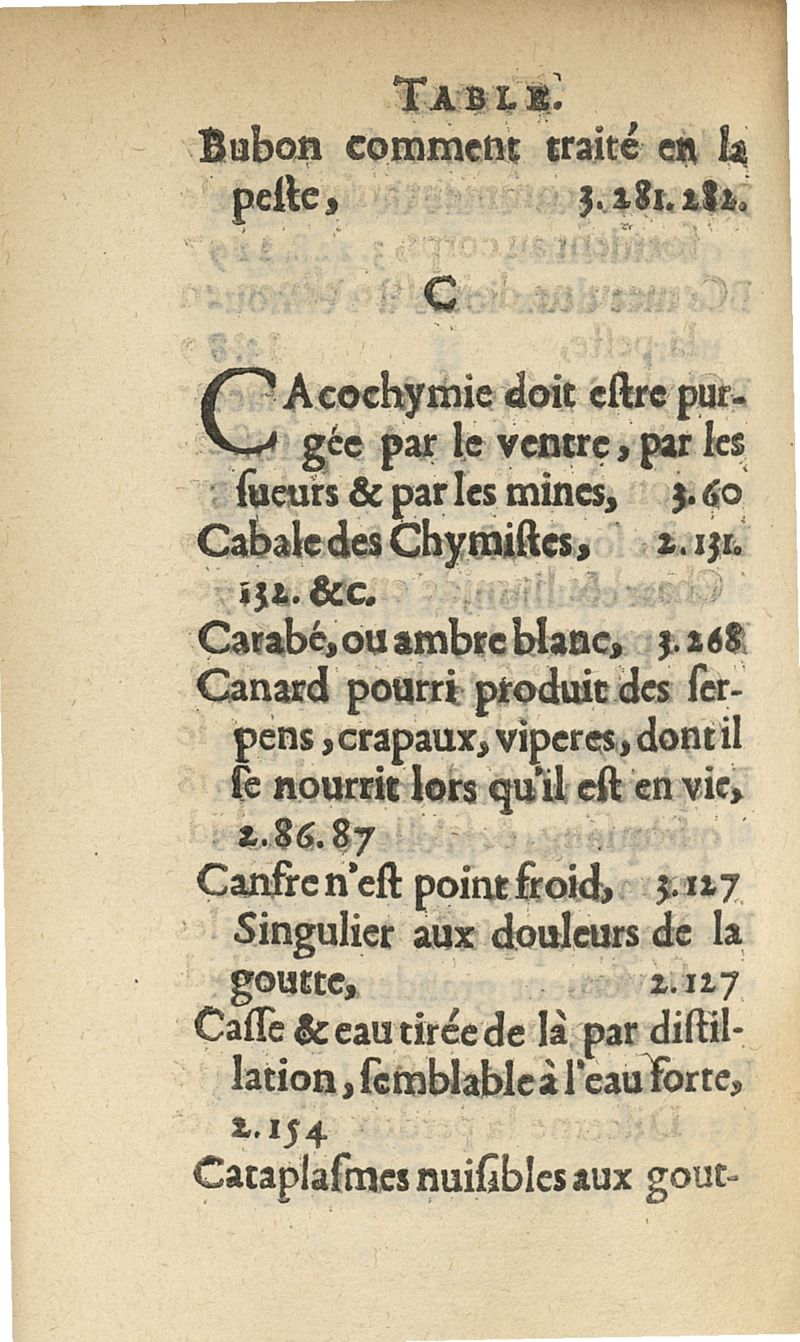 TABLE.
Bubon comment traité en la
peſte, 3.281.282.
C
CAcochymie doit eſtre pur-
gée par le ventre, par les
ſueurs & par les mines, 3.60
Cabale des Chymiſtes, 2.131.
132. &c.
Carabé, ou ambre blanc, 3.268
Canard pourri produit des ſer-
pens, crapaux, viperes, dont il
ſe nourrit lors qu'il eſt en vie,
2.86.87
Canfre n'eſt point froid, 3.127
Singulier aux douleurs de la
goutte, 2.127
Caſſe & eau tirée de là par diſtil-
lation, ſemblable à l'eau forte,
2.154
Cataplaſmes nuiſibles aux gout-